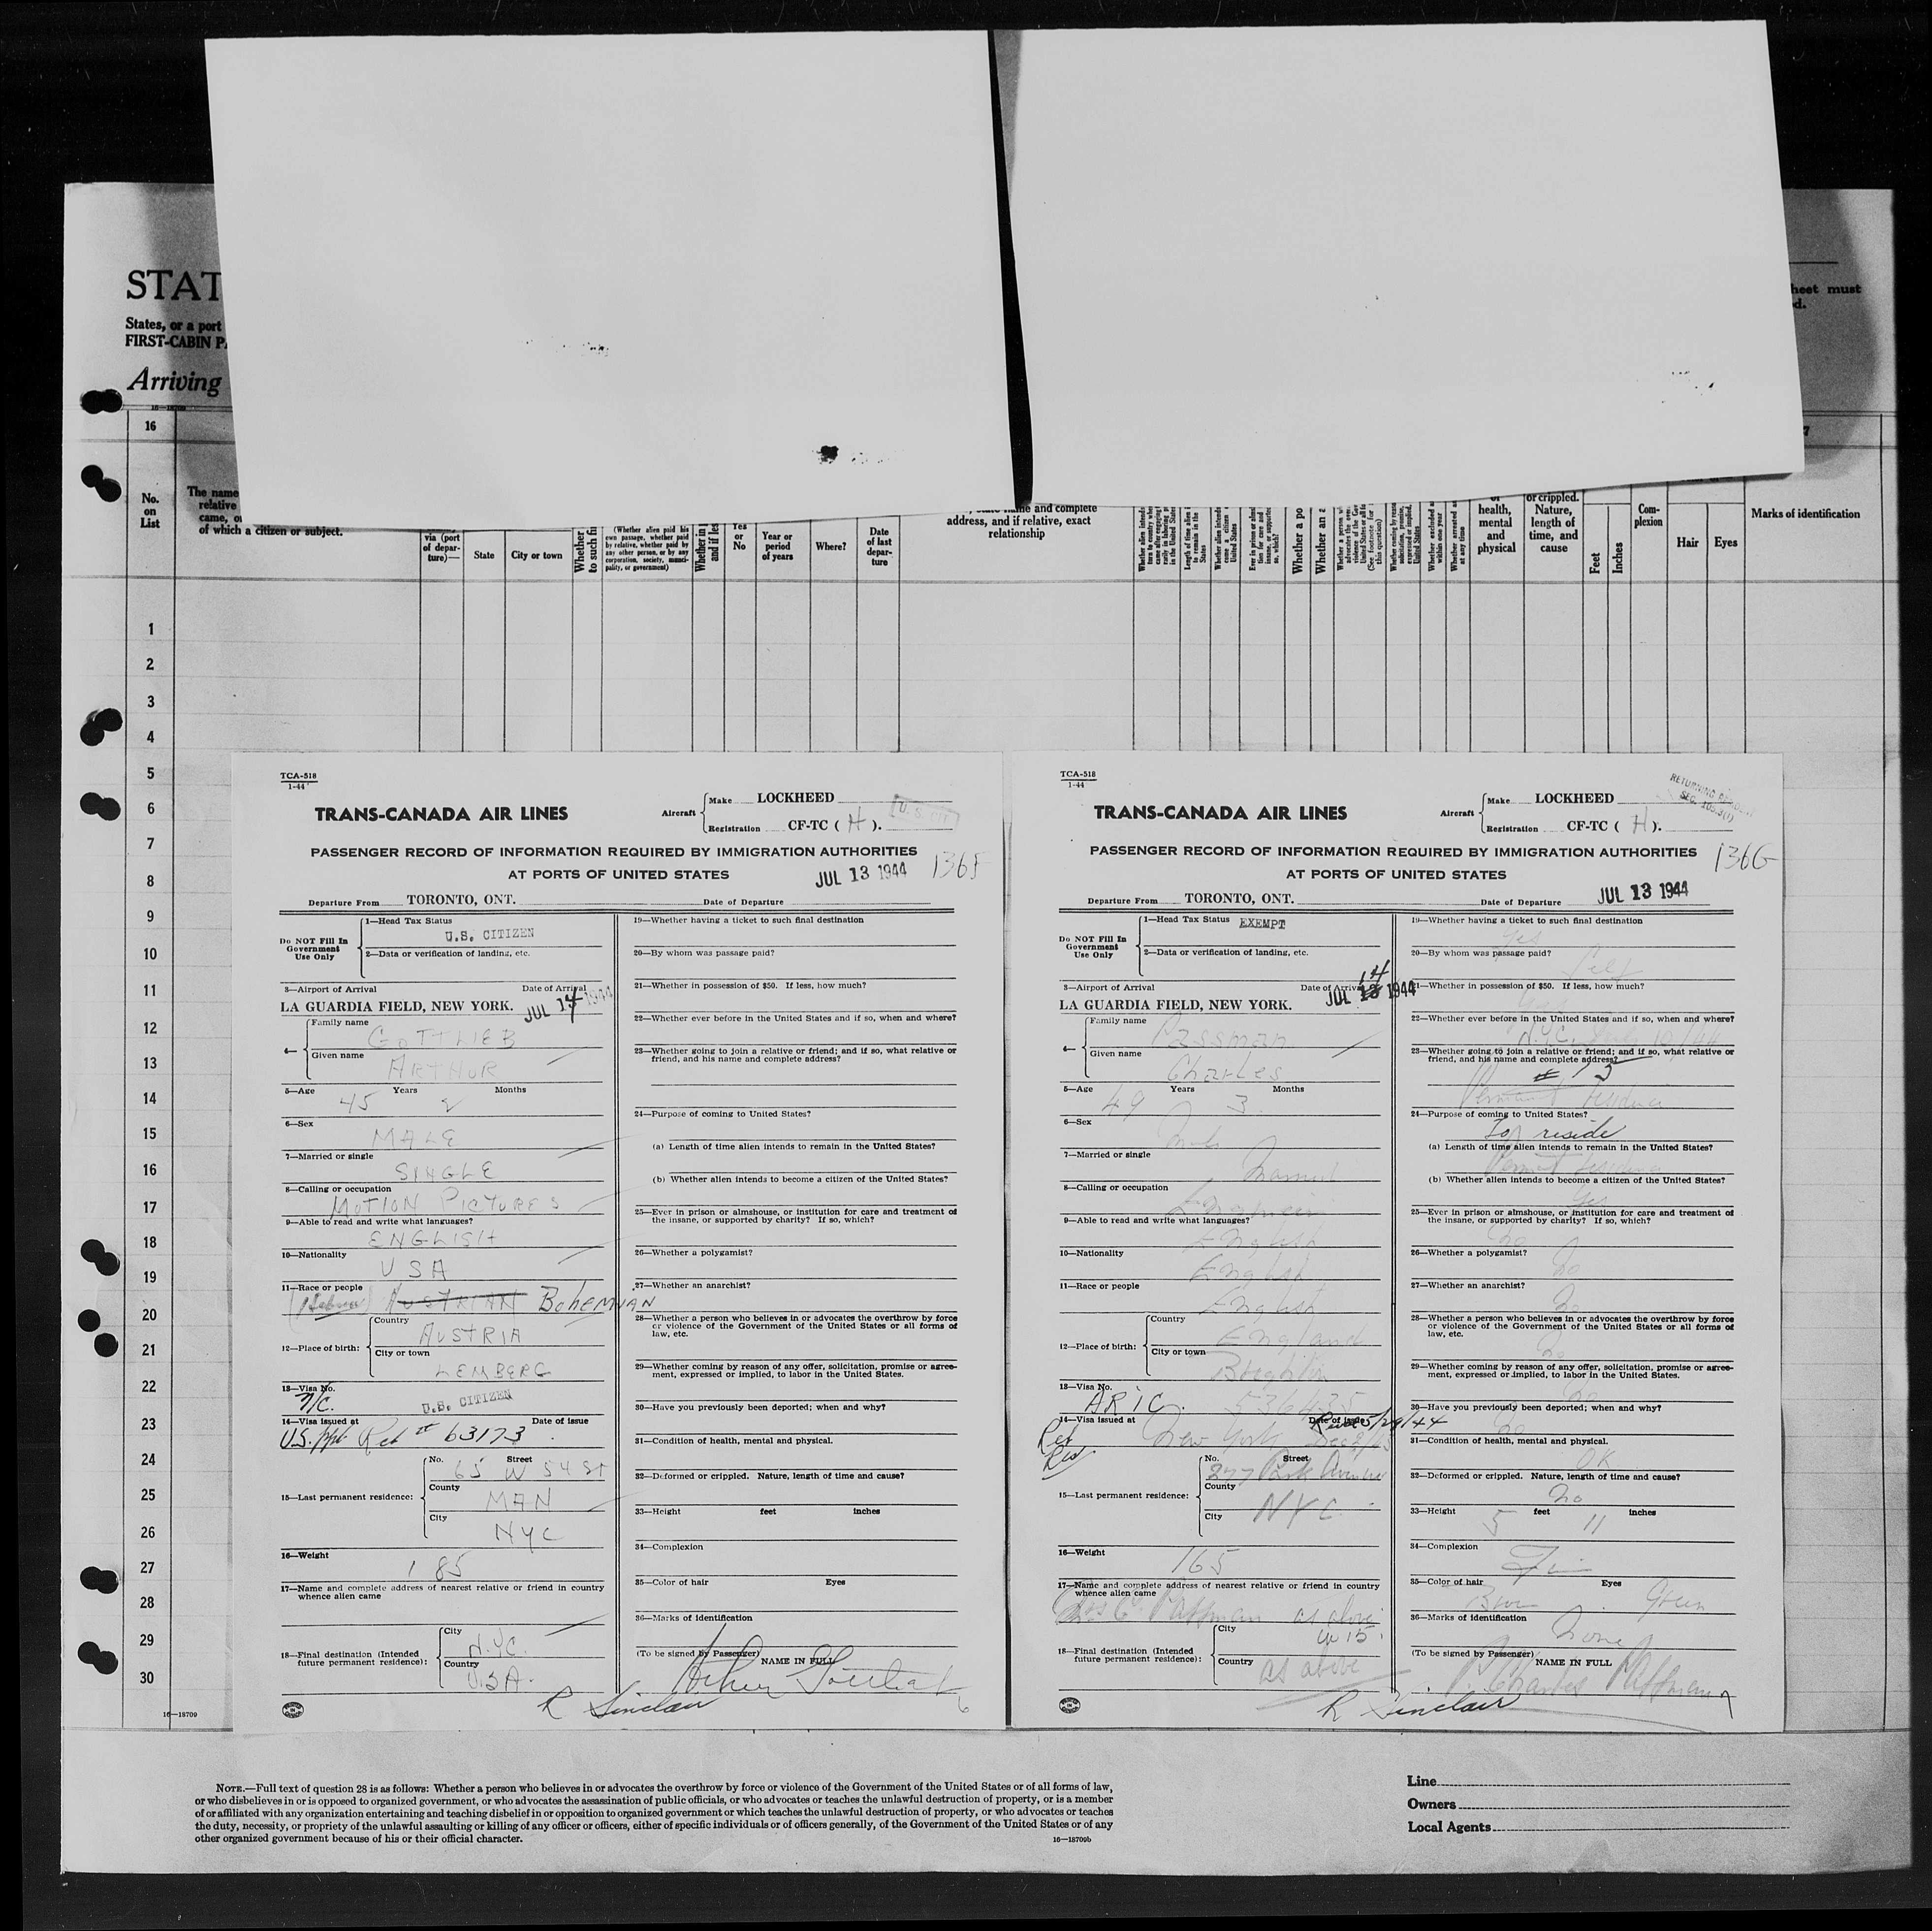 STAT
States, or a port
FIRST-CABIN P
Arriving
heet must
d.
16
7
No.
on
List
The name
relative
came, o
of which a citizen or subject.
via (port
of depar-
ture)—
State
City or town
Whether
to such fi
(Whether alien paid his
own passage, whether paid
by relative, whether paid by
any other person, or by any
corporation, society, munici-
pality, or government)
Whether in
and if les
Yes
or
No
Year or
period
of years
Where?
Date
of last
depar-
ture
and complete
address, and if relative, exact
relationship
Whether a po
Whether an a
health,
mental
and
physical
or crippled.
Nature,
length of
time, and
cause
Feet
Inches
Com-
plexion
Hair
Eyes
Marks of identification
1
2
3
4
5
6
7
8
9
10
11
12
13
14
15
16
17
18
19
20
21
22
23
24
25
26
27
28
29
30
16—18709
TCA-518
1-44
TRANS-CANADA AIR LINES
Aircraft
Make LOCKHEED
Registration CF-TC ( H ).
PASSENGER RECORD OF INFORMATION REQUIRED BY IMMIGRATION AUTHORITIES
136F
AT PORTS OF UNITED STATES
JUL 13 1944
Departure From TORONTO, ONT. Date of Departure
Do NOT Fill In
Government
Use Only
1—Head Tax Status
U.S. CITIZEN
2—Data or verification of landing, etc.
3—Airport of Arrival Date of Arrival
LA GUARDIA FIELD, NEW YORK. JUL 14 1944
4—
Family name
GOTTLIEB
Given name
ARTHUR
5—Age Years Months
45 2
6—Sex
MALE
7—Married or single
SINGLE
8—Calling or occupation
MOTION PICTURES
9—Able to read and write what languages?
ENGLISH
10—Nationality
USA
11—Race or people
(Hebrew) AUSTRIAN BOHEMIAN
12—Place of birth:
Country
AUSTRIA
City or town
LEMBERG
13—Visa No.
N/C. U.S. CITIZEN
14—Visa issued at Date of issue
US. ppt Ret # 63173
15—Last permanent residence:
No. Street
65 W 54 ST
County
MAN
City
NYC
16—Weight
185
17—Name and complete address of nearest relative or friend in country
whence alien came
18—Final destination (Intended
future permanent residence):
City
N.Y.C.
Country
U.S.A.
19—Whether having a ticket to such final destination
20—By whom was passage paid?
21—Whether in possession of $50. If less, how much?
22—Whether ever before in the United States and if so, when and where?
23—Whether going to join a relative or friend; and if so, what relative or
friend, and his name and complete address?
24—Purpose of coming to United States?
(a) Length of time alien intends to remain in the United States?
(b) Whether alien intends to become a citizen of the United States?
25—Ever in prison or almshouse, or institution for care and treatment of
the insane, or supported by charity? If so, which?
26—Whether a polygamist?
27—Whether an anarchist?
28—Whether a person who believes in or advocates the overthrow by force
or violence of the Government of the United States or all forms of
law, etc.
29—Whether coming by reason of any offer, solicitation, promise or agree-
ment, expressed or implied, to labor in the United States.
30—Have you previously been deported; when and why?
31—Condition of health, mental and physical.
32—Deformed or crippled. Nature, length of time and cause?
33—Height feet inches
34—Complexion
35—Color of hair Eyes
36—Marks of identification
(To be signed by Passenger)
NAME IN FULL
Arthur Gottlieb
R Sinclair
TCA-518
1-44
TRANS-CANADA AIR LINES
Aircraft
Make LOCKHEED
Registration CF-TC ( H ).
RETURNING RESIDENT
PASSENGER RECORD OF INFORMATION REQUIRED BY IMMIGRATION AUTHORITIES
136G
AT PORTS OF UNITED STATES
JUL 13 1944
Departure From TORONTO, ONT. Date of Departure
Do NOT Fill In
Government
Use Only
1—Head Tax Status EXEMPT
2—Data or verification of landing, etc.
14
3—Airport of Arrival Date of Arrival
LA GUARDIA FIELD, NEW YORK. JUL 13 1944
4—
Family name
Passman
Given name
Charles
5—Age Years Months
49 3
6—Sex
Male
7—Married or single
Married
8—Calling or occupation
Engineer
9—Able to read and write what languages?
English
10—Nationality
English
11—Race or people
English
12—Place of birth:
Country
England
City or town
13—Visa No.
ARIC. 536435
14—Visa issued at Date of issue
New York
15—Last permanent residence:
No. Street
277 Park Avenue
County
NYC
City
16—Weight
165
17—Name and complete address of nearest relative or friend in country
whence alien came
as above
18—Final destination (Intended
future permanent residence):
City
Country
as above
19—Whether having a ticket to such final destination
yes
20—By whom was passage paid?
Self
21—Whether in possession of $50. If less, how much?
Yes
22—Whether ever before in the United States and if so, when and where?
N.Y.C.
23—Whether going to join a relative or friend; and if so, what relative or
friend, and his name and complete address?
24—Purpose of coming to United States?
To reside
(a) Length of time alien intends to remain in the United States?
(b) Whether alien intends to become a citizen of the United States?
Yes
25—Ever in prison or almshouse, or institution for care and treatment of
the insane, or supported by charity? If so, which?
no
26—Whether a polygamist?
no
27—Whether an anarchist?
no
28—Whether a person who believes in or advocates the overthrow by force
or violence of the Government of the United States or all forms of
law, etc.
no
29—Whether coming by reason of any offer, solicitation, promise or agree-
ment, expressed or implied, to labor in the United States.
no
30—Have you previously been deported; when and why?
no
31—Condition of health, mental and physical.
OK
32—Deformed or crippled. Nature, length of time and cause?
no
33—Height feet inches
5 11
34—Complexion
35—Color of hair Eyes
Green
36—Marks of identification
none
(To be signed by Passenger)
NAME IN FULL
Charles Passman
R Sinclair
NOTE.—Full text of question 28 is as follows: Whether a person who believes in or advocates the overthrow by force or violence of the Government of the United States or of all forms of law,
or who disbelieves in or is opposed to organized government, or who advocates the assassination of public officials, or who advocates or teaches the unlawful destruction of property, or is a member
of or affiliated with any organization entertaining and teaching disbelief in or opposition to organized government or which teaches the unlawful destruction of property, or who advocates or teaches
the duty, necessity, or propriety of the unlawful assaulting or killing of any officer or officers, either of specific individuals or of officers generally, of the Government of the United States or of any
other organized government because of his or their official character.
16—18709b
Line
Owners
Local Agents